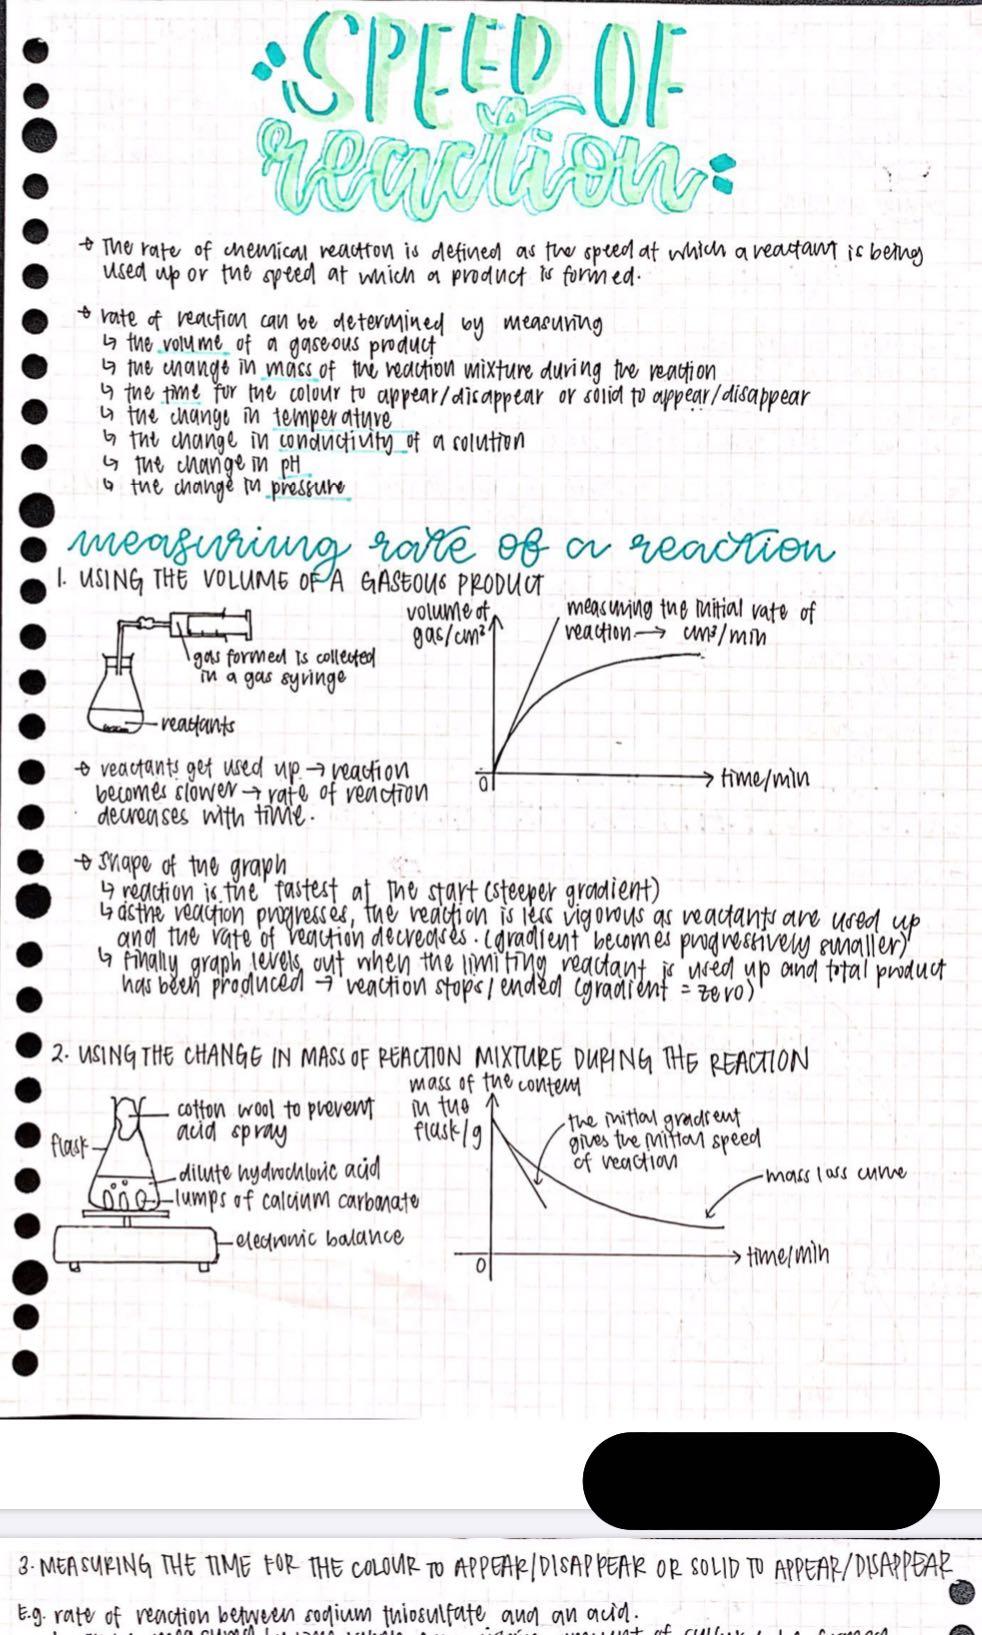 SPEED OF
reaction
→ The rate of chemical reaction is defined as the speed at which a reactant is being
used up or the speed at which a product is formed.
→ rate of reaction can be determined by measuring
↳ the volume of a gaseous product
↳ the change in mass of the reaction mixture during the reaction
↳ the time for the colour to appear/disappear or solid to appear/disappear
↳ the change in temperature
↳ the change in conductivity of a solution
↳ the change in pH
↳ the change in pressure
measuring rate of a reaction
1. USING THE VOLUME OF A GASEOUS PRODUCT
gas formed is collected
in a gas syringe
reactants
volume of
gas/cm³
measuring the initial rate of
reaction → cm³/min
0
time/min
→ reactants get used up → reaction
becomes slower → rate of reaction
decreases with time.
→ shape of the graph
↳ reaction is the fastest at the start (steeper gradient)
↳ as the reaction progresses, the reaction is less vigorous as reactants are used up
and the rate of reaction decreases. (gradient becomes progressively smaller)
↳ finally graph levels out when the limiting reactant is used up and total product
has been produced → reaction stops/ended (gradient = zero)
2. USING THE CHANGE IN MASS OF REACTION MIXTURE DURING THE REACTION
cotton wool to prevent
acid spray
flask
dilute hydrochloric acid
lumps of calcium carbonate
electronic balance
mass of the content
in the
flask/g
the initial gradient
gives the initial speed
of reaction
mass loss curve
0
time/min
3. MEASURING THE TIME FOR THE COLOUR TO APPEAR/DISAPPEAR OR SOLID TO APPEAR/DISAPPEAR
E.g. rate of reaction between sodium thiosulfate and an acid.